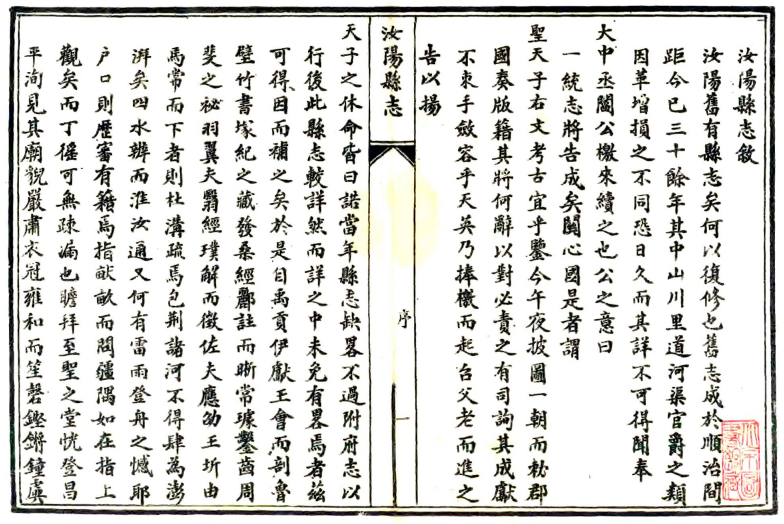 汝陽縣志敘
汝陽舊有縣志矣何以復修也舊志成於順治間
距今已三十餘年其中山川里道河渠官爵之類
因革增損之不同恐日久而其詳不可得聞奉
大中丞閻公檄來續之也公之意曰
一統志將告成矣關心國是者謂
聖天子右文考古宜乎鑒今午夜披圖一朝而勅郡
國奏版籍其將何辭以對必責之有司詢其成獻
不束手斂容乎天英乃捧檄而起召父老而進之
告以揚
汝陽縣志
序
一
天子之休命皆曰諾當年縣志缺畧不過附府志以
行後此縣志較詳然而詳之中未免有畧焉者茲
可得因而補之矣於是自禹貢伊獻王會而剖魯
壁竹書塚紀之藏發桑經酈註而晰常璩鑿齒周
斐之祕羽翼夫翳經璞解而徵佐夫應劭王圻由
馬常而下者則杜溝疏焉包荆諸河不得肆為澎
湃矣四水辨而淮汝通又何有雷雨登舟之憾耶
户口則歷審有籍焉指畎畝而閱疆隅如在指上
觀矣而丁徭可無疎漏也瞻拜至聖之堂恍登昌
平洵見其廟貌嚴肅衣冠雍和而笙磬鏗鏘鐘虡